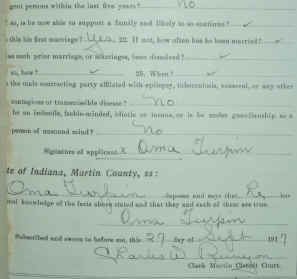 gent persons within the last five years? No
so, is he now able to support a family and likely to so continue?
this his first marriage? Yes 22. If not, how often has he been married?
as such prior marriage, or marriages, been dissolved?
so, how? 25. When?
the male contracting party afflicted with epilepsy, tuberculosis, venereal, or any other
contagious or transmissible disease? No
he an imbecile, feeble-minded, idiotic or insane, or is he under guardianship as a
person of unsound mind? No
Signature of applicant x Oma Turpin
te of Indiana, Martin County, ss:
Oma Turpin deposes and says that he has
nal knowledge of the facts above stated and that they and each of them are true.
Oma Turpin
Subscribed and sworn to before me, this 29 day of Sept 1917
Charles W.
Clerk Martin Circuit Court.